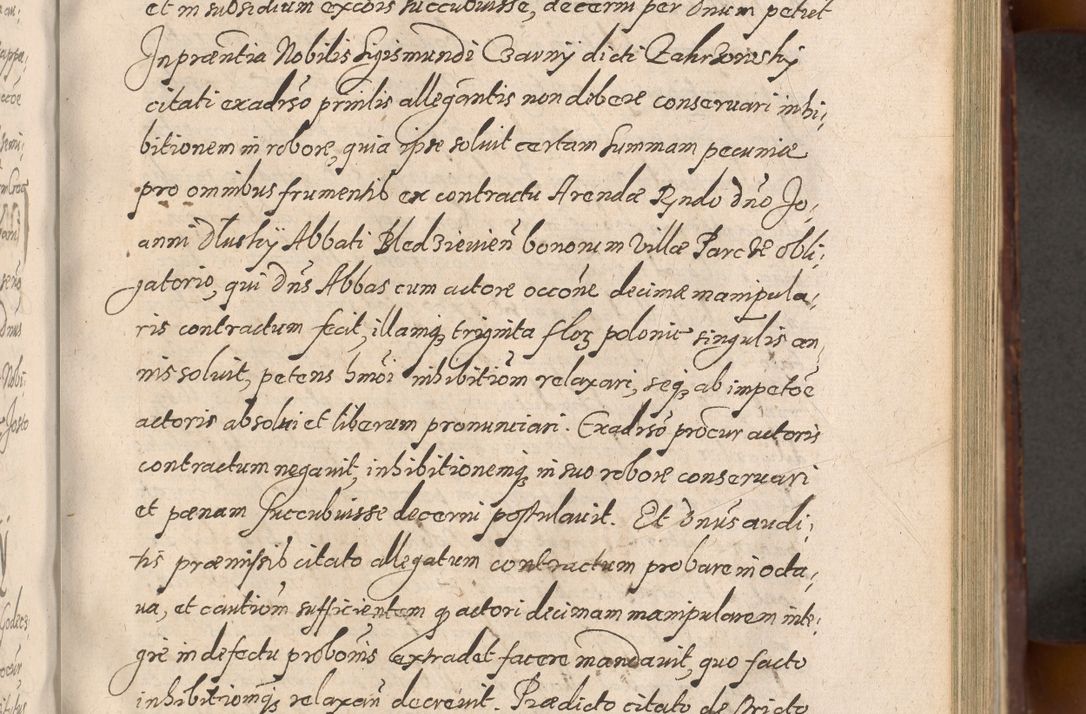 et in subsidium excõis succubuisse, decerni per Dnum petut
In præntia Nobilis Sigismundi Czarny dicti Zakrzowsky
citati exadrso prinlis allegantis non debere conseruari inhi,
bitionem in robore, quia ipse soluit certam summam pecuniæ
pro omnibus frumentis ex contractu Arendæ Rndo dño Jo,
anni Dłusky Abbati Bledzieuien bonorum Villæ Parcze obli,
gatorio, qui Dns Abbas cum actore occõne decimæ manipula,
ris contractum fecit, illamq triginta floz polonic singulis an,
nis soluit, petens hmõi inhibitiom relaxari, seq ab impetõe
actoris absolui et liberum pronunciari. Exadrso procur actoris
contractum negauit, inhibitionemq in suo robore conseruari
et pænam succubuisse decerni postulauit. Et Dnus audi,
tis præmissis citato allegatum contractum probare in octa,
ua, et cautiom sufficientem q actori decimam manipularem inte,
gre in defectu probonis extradet facere mandauit, quo facto
inhibitiomq relaxan decreuit. Prædicto citato de Bricto